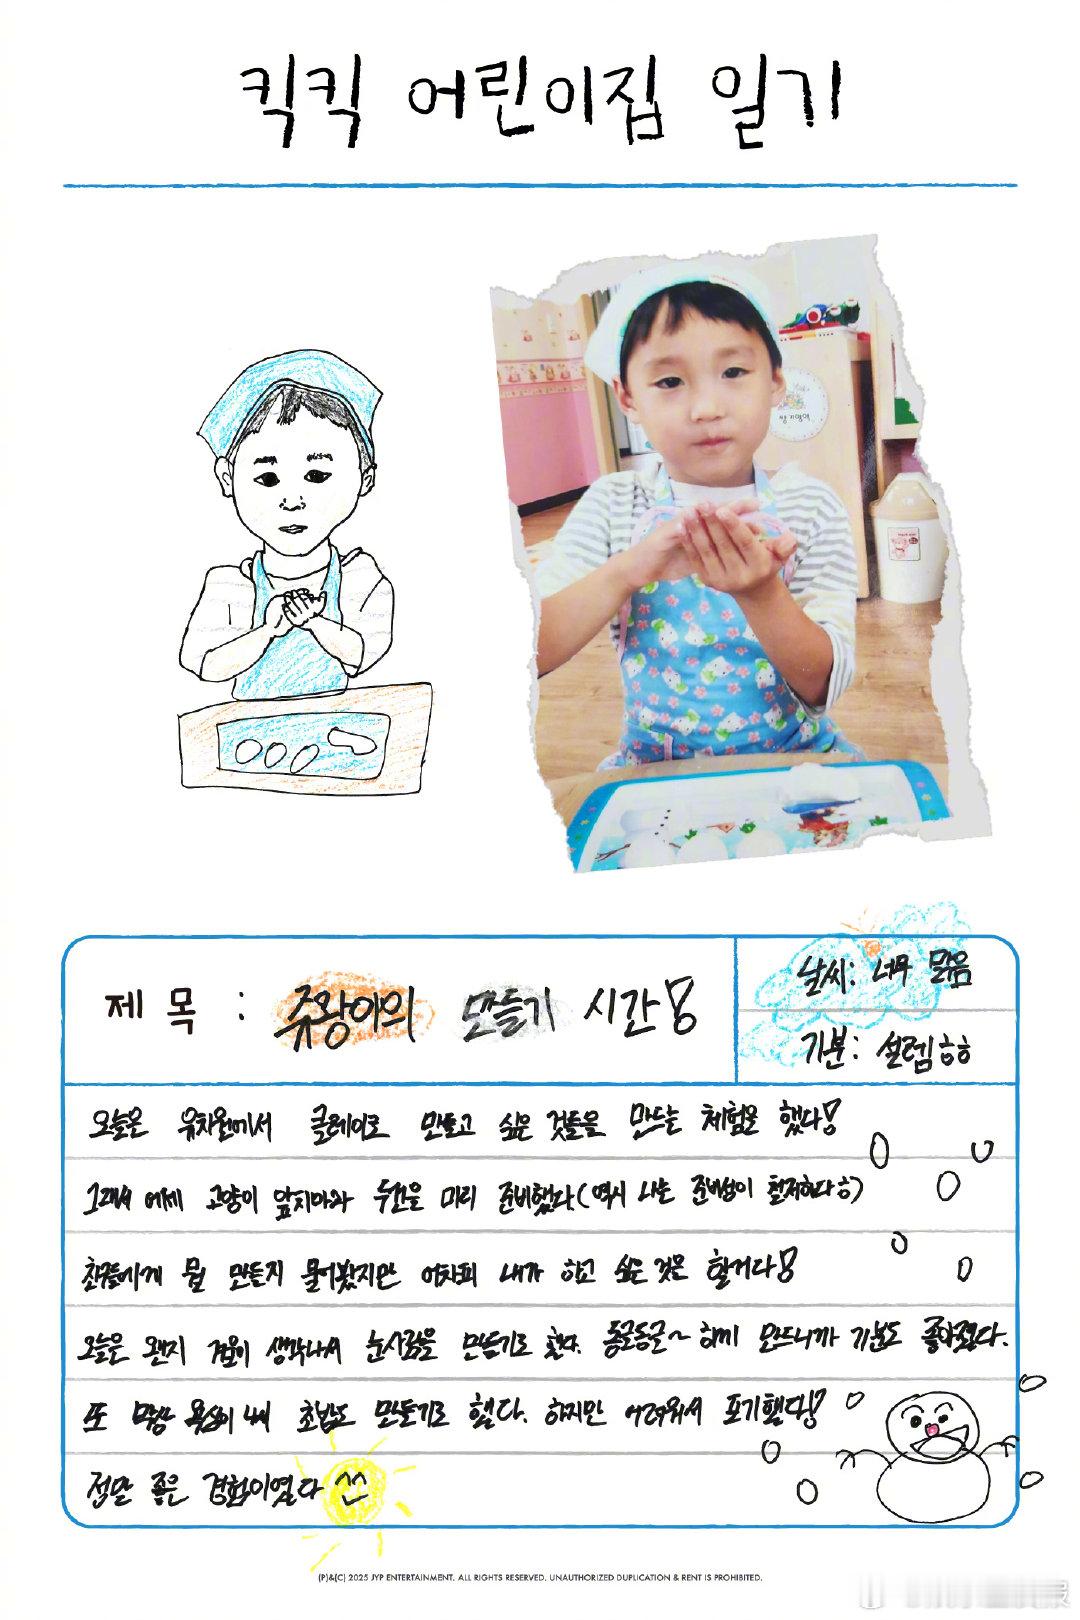 킥킥 어린이집 일기
쌓기영역
제 목 : 쥬왕이의 만들기 시간!
날씨: 너무 맑음
기분: 설렘ㅎㅎ
오늘은 유치원에서 클레이로 만들고 싶은 것들을 만드는 체험을 했다!
그래서 어제 고양이 앞치마와 두건을 미리 준비했다.(역시 나는 준비성이 철저하다ㅎ)
친구들에게 뭘 만들지 물어봤지만 어차피 내가 하고 싶은 것은 할거다!
오늘은 왠지 겨울이 생각나서 눈사람을 만들기로 했다. 동글동글~ 하게 만드니까 기분도 좋아졌다.
또 욕심이 내서 초밥도 만들기로 했다. 하지만 어려워서 포기했다!
정말 좋은 경험이였다 ^^
(P)&(C) 2025 JYP ENTERTAINMENT. ALL RIGHTS RESERVED. UNAUTHORIZED DUPLICATION & RENT IS PROHIBITED.